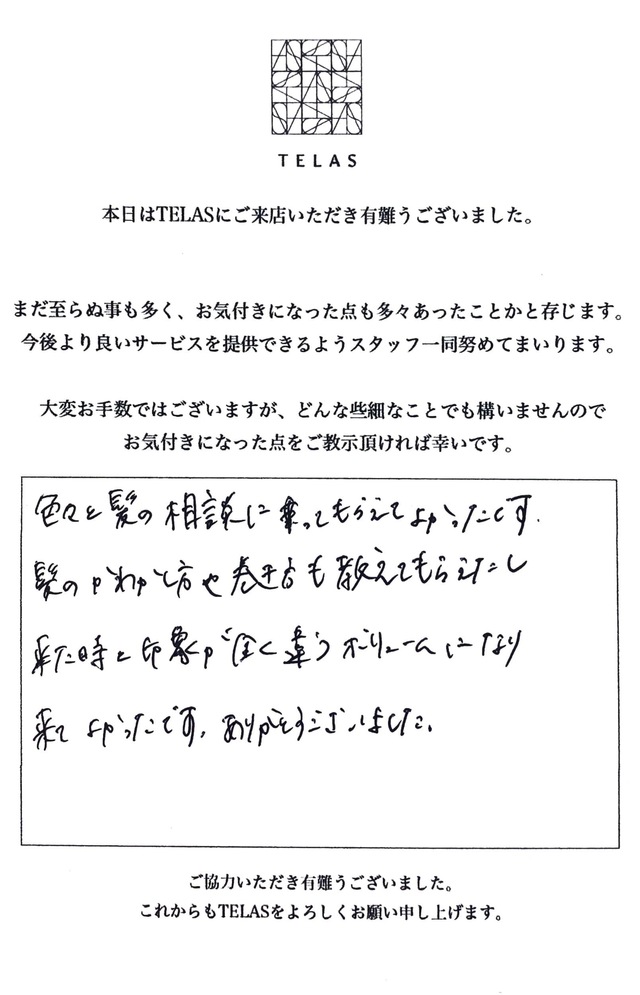 TELAS
本日はTELASにご来店いただき有難うございました。
まだ至らぬ事も多く、お気付きになった点も多々あったことかと存じます。
今後より良いサービスを提供できるようスタッフ一同努めてまいります。
大変お手数ではございますが、どんな些細なことでも構いませんので
お気付きになった点をご教示頂ければ幸いです。
色々と髪の相談に乗ってもらえてよかったです.
髪のかわかし方や巻き方も教えてもらえたし
来た時と印象が全く違うボリュームになり
来てよかったです。ありがとうございました。
ご協力いただき有難うございました。
これからもTELASをよろしくお願い申し上げます。